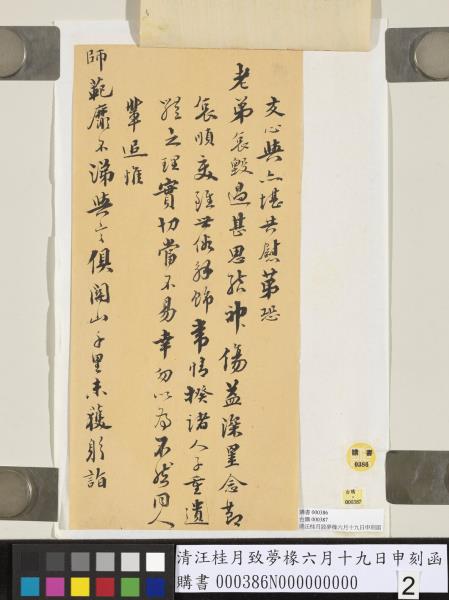 友心與亦堪共慰第恐
老弟哀毀過甚思能神傷益深星念節
哀順變雖世俗 常情揆諸人子重遺
體之理實切當不易幸勿以為不然同人
輩追惟
師範靡不涕與言俱關山千里未獲躬詣
購書
0386
台購
000387
購書 000386
台購 000387
清汪桂月致夢橡六月十九日申刻函
清汪桂月致夢橡六月十九日申刻函
購書 000386N000000000
2